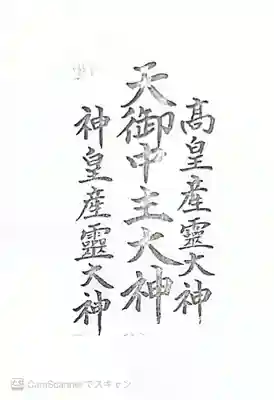 高皇産靈大神
天御中主大神
神皇産靈大神
CamScannerでスキャン